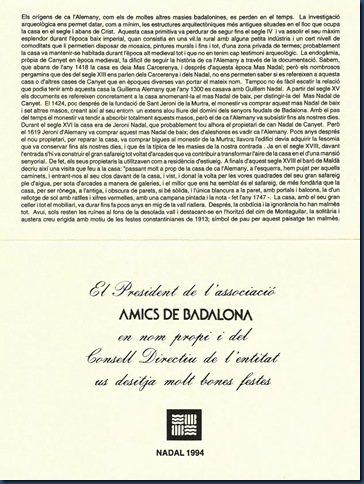 Els orígens de ca l'Alemany, com els de moltes altres masies badalonines, es perden en el temps. La investigació
arqueològica ens permet datar, com a mínim, les estructures arquitectòniques més antigues situades en el lloc que ocupa
la casa en el segle I abans de Crist. Aquesta casa primitiva va perdurar de segur fins el segle IV i va assolir el seu màxim
esplendor durant l'època baix imperial, quan consistia en una vil.la rural amb alguna petita indústria i un cert nivell de
comoditats que li permetien disposar de mosaics, pintures murals i fins i tot, d'una zona privada de termes; probablement
la casa va mantenir-se habitada durant l'època alt medieval tot i que no en tenim cap testimoni arqueològic. La endogàmia,
pròpia de Canyet en època medieval, fa difícil de seguir la història de ca l'Alemany a través de la documentació. Sabem,
que abans de l'any 1418 la casa es deia Mas Carcerenya, i després d'aquesta època Mas Nadal; però els nombrosos
pergamins que des del segle XIII ens parlen dels Carcerenya i dels Nadal, no ens permeten saber si es refereixen a aquesta
casa o altres cases de Canyet que en èpoques diverses van portar el mateix nom. Tampoc no és fàcil escatir la relació
que podia tenir amb aquesta casa la Guillema Alemany que l'any 1300 es casava amb Guillem Nadal. A partir del segle XV
els documents es refereixen concretament a la casa anomenant-la el mas Nadal de baix, per distingir-la del Mas Nadal de
Canyet. El 1424, poc després de la fundació de Sant Jeroni de la Murtra, el monestir va comprar aquest mas Nadal de baix
i set altres masos creant així al seu entorn un extens alou lliure del domini dels senyors feudals de Badalona. Amb el pas
del temps el monestir va tendir a absorbir totalment aquests masos, però el de ca l'Alemany va subsistir fins als nostres dies.
Durant el segle XVI la casa era de Jeroni Nadal, que probablement fou alhora el propietari del Mas Nadal de Canyet. Però
el 1619 Jeroni d'Alemany va comprar aquest mas Nadal de baix; des d'aleshores es vadir ca l'Alemany. Pocs anys després
el nou propietari, per reparar la casa, va comprar bigues al monestir de la Murtra; llavors l'edifici devia adquirir la fesomia
que va conservar fins als nostres dies, i que és la típica de les masies de la nostra contrada. Ja en el segle XVIII, davant
l'entrada s'hi va construir el gran safareig tot voltat d'arcades que va contribuir a transformar l'aire de la casa en el d'una mansió
senyorial. De fet, els seus propietaris la utilitzaven com a residència d'estiueig. A finals d'aquest segle XVIII el baró de Maldà
decriu així una visita que feu a la casa: "passant molt a prop de la casa de ca l'Alemany, a l'esquerra, hem pujat per aquells
caminets, i entrant-nos al seu clos davant de la casa, i vist, i donat la volta per les vores quadrades del seu gran safareig
ple d'aigua, per sota d'arcades a manera de galeries, i el millor que ens ha semblat és el safareig, de més fondària que la
casa, per ser rònega, a l'antiga, i obscura de parets, si bé sòlida, i l'única blancura a la paret, amb portals i balcons, la d'un
rellotge de sol amb ratlles i xifres vermelles, amb una campana pintada i la nota - fet l'any 1747 -. La casa, amb el seu gran
celler i tot el mobiliari, va durar fins fa pocs anys en mig de la vall riallera. Després, la cobdícia i la ignorància ho han malmès
tot. Avui, sols resten les ruïnes al fons de la desolada vall i destacant-se en l'horitzó del cim de Montaguilar, la solitària i
austera creu erigida amb motiu de les festes constantinianes de 1913; símbol de pau per aquest paisatge tan malmès.
El President de l'associació
AMICS DE BADALONA
en nom propi i del
Consell Directiu de l'entitat
us desitja molt bones festes
NADAL 1994